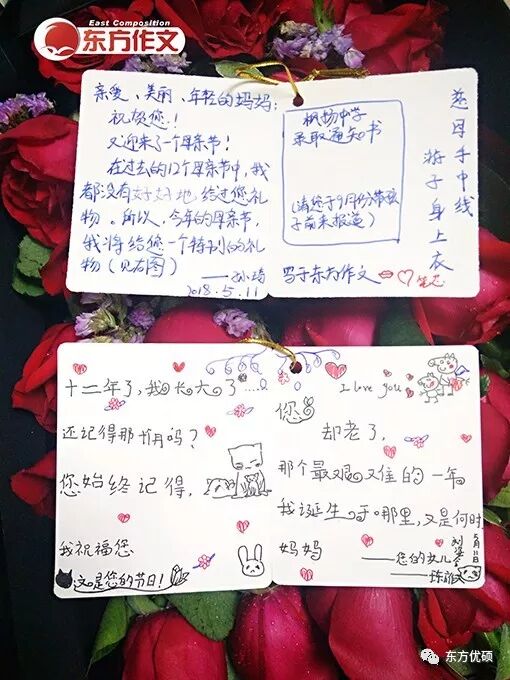 East Composition
东方作文
亲爱、美丽、年轻的妈妈:
祝福您!
又迎来了一个母亲节!
在过去的12个母亲节中,我
都没有好好地给过您礼
物,所以,今年的母亲节,
我将给您一个特别的礼
物(见右图)
2018.5.11
录取通知书
(请您于9月份带孩
子前来报道)
写于东方作文
慈母手中线
游子身上衣
十二年了,我长大了......
还记得那书月吗?
您始终记得,
我祝福您
这是您的节日!
I love you
您
却老了,
那个最艰难的一年
我诞生于哪里,又是何时
妈妈
——您的女儿
5月11日
东方优硕